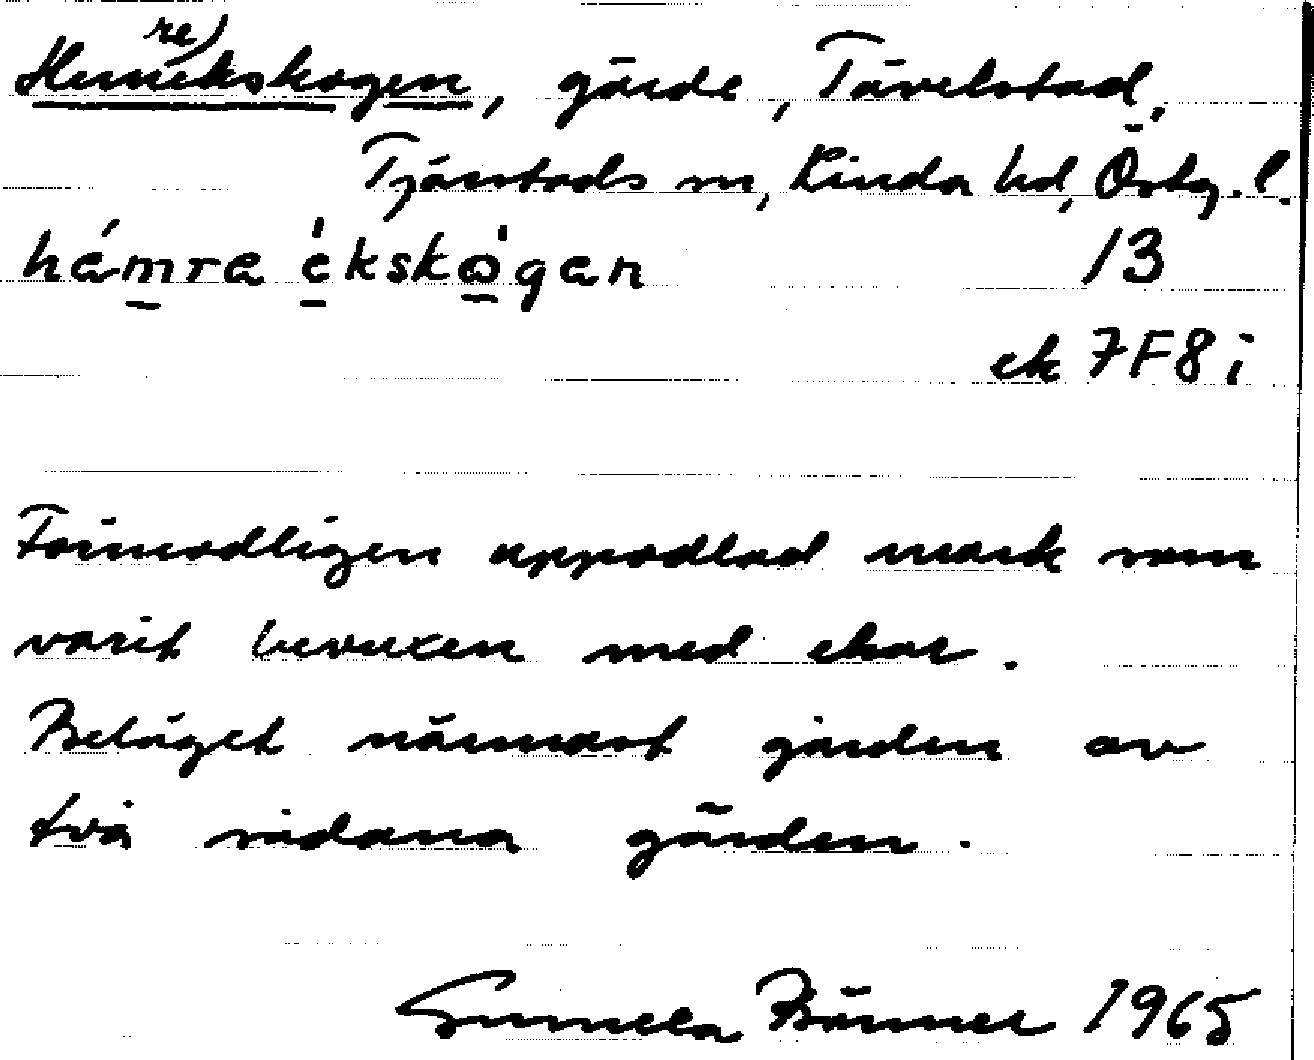 re)
Hemekskogen, gärde, Tävelstad,
Tjärstads sn, Kinda hd, Östg. l.
hámra èkskògan 13
ek 7F8i
Förmodligen uppodlad mark som
varit bevuxen med ekar.
Beläget närmast gården av
två sådana gärden.
Gunnela Bönner 1965